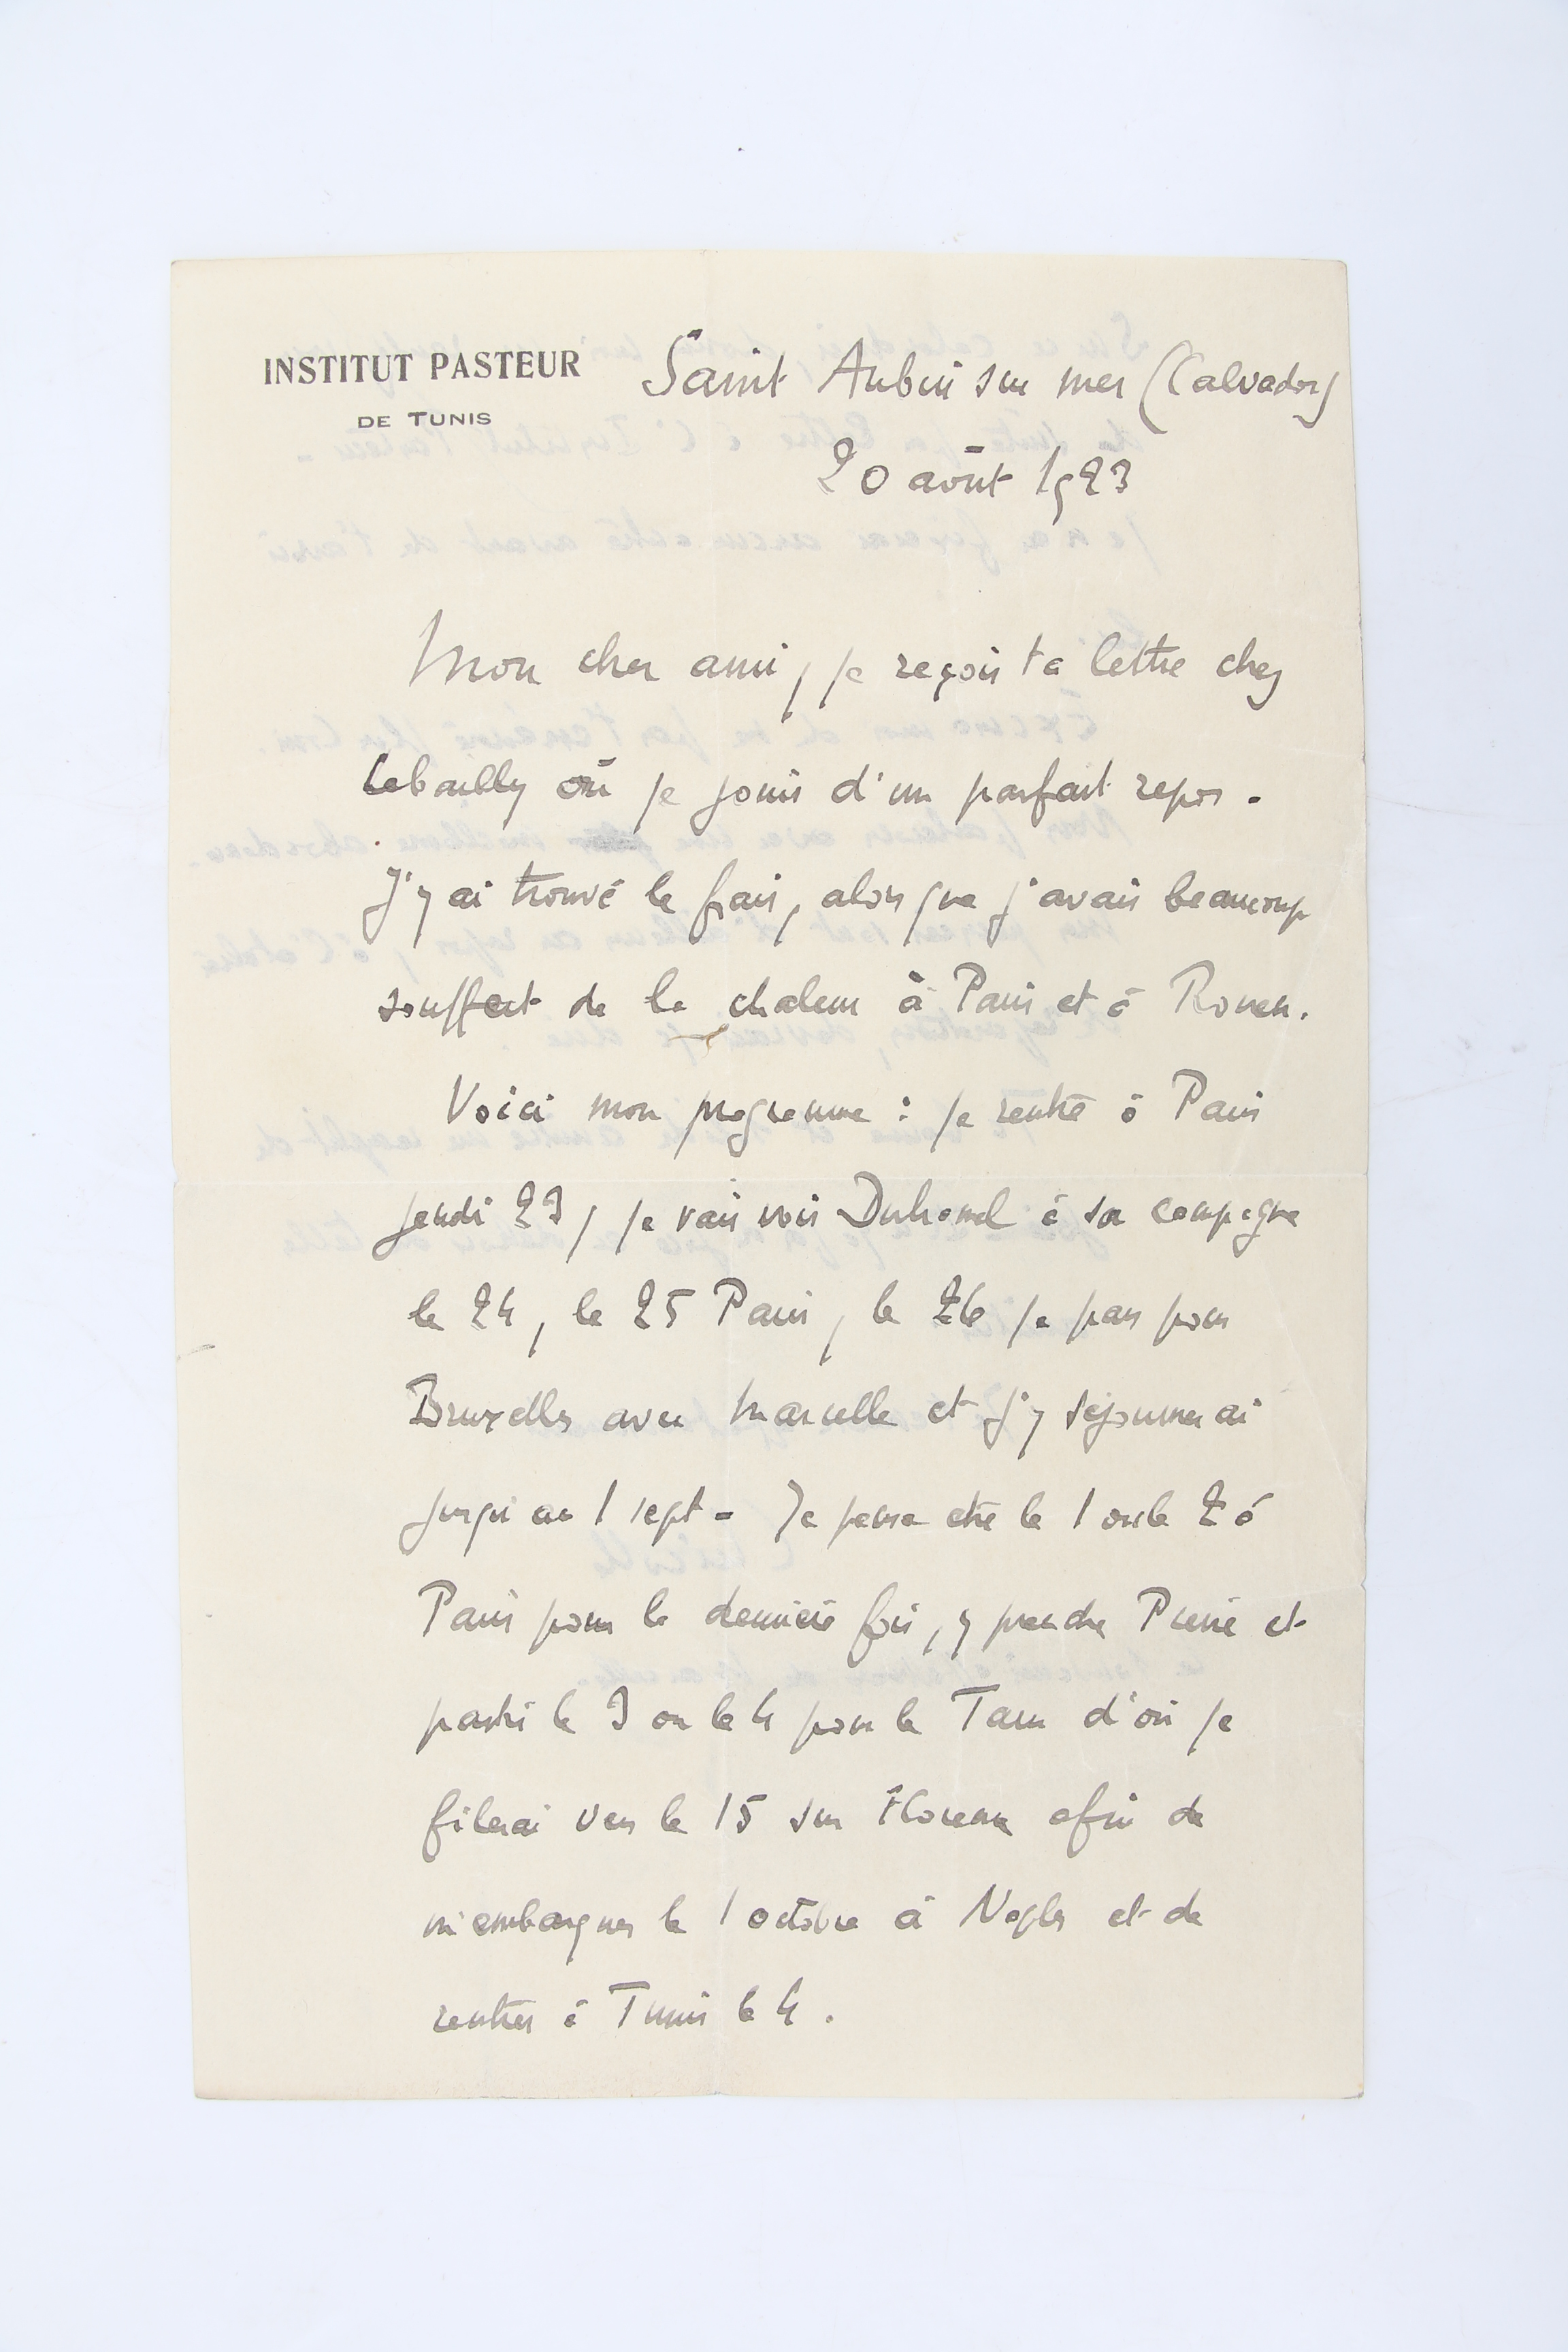 INSTITUT PASTEUR
DE TUNIS
Saint Aubin sur mer (Calvados)
20 août 1923
Mon cher ami, je reçois ta lettre chez
Lebailly où je jouis d'un parfait repos.
J'y ai trouvé le frais, alors que j'avais beaucoup
souffert de la chaleur à Paris et à Rouen.
Voici mon programme : je rentre à Paris
jeudi 23, je vais voir Duhamel à sa campagne
le 24, le 25 Paris, le 26 je pars pour
Bruxelles avec Marcelle et j'y séjournerai
jusqu'au 1 sept - Je pense être le 1 ou le 2 à
Paris pour la dernière fois, y prendre Pierre et
partir le 3 ou le 4 pour le Tarn d'où je
filerai vers le 15 sur Florence afin de
m'embarquer le 1 octobre à Naples et de
rentrer à Tunis le 4.